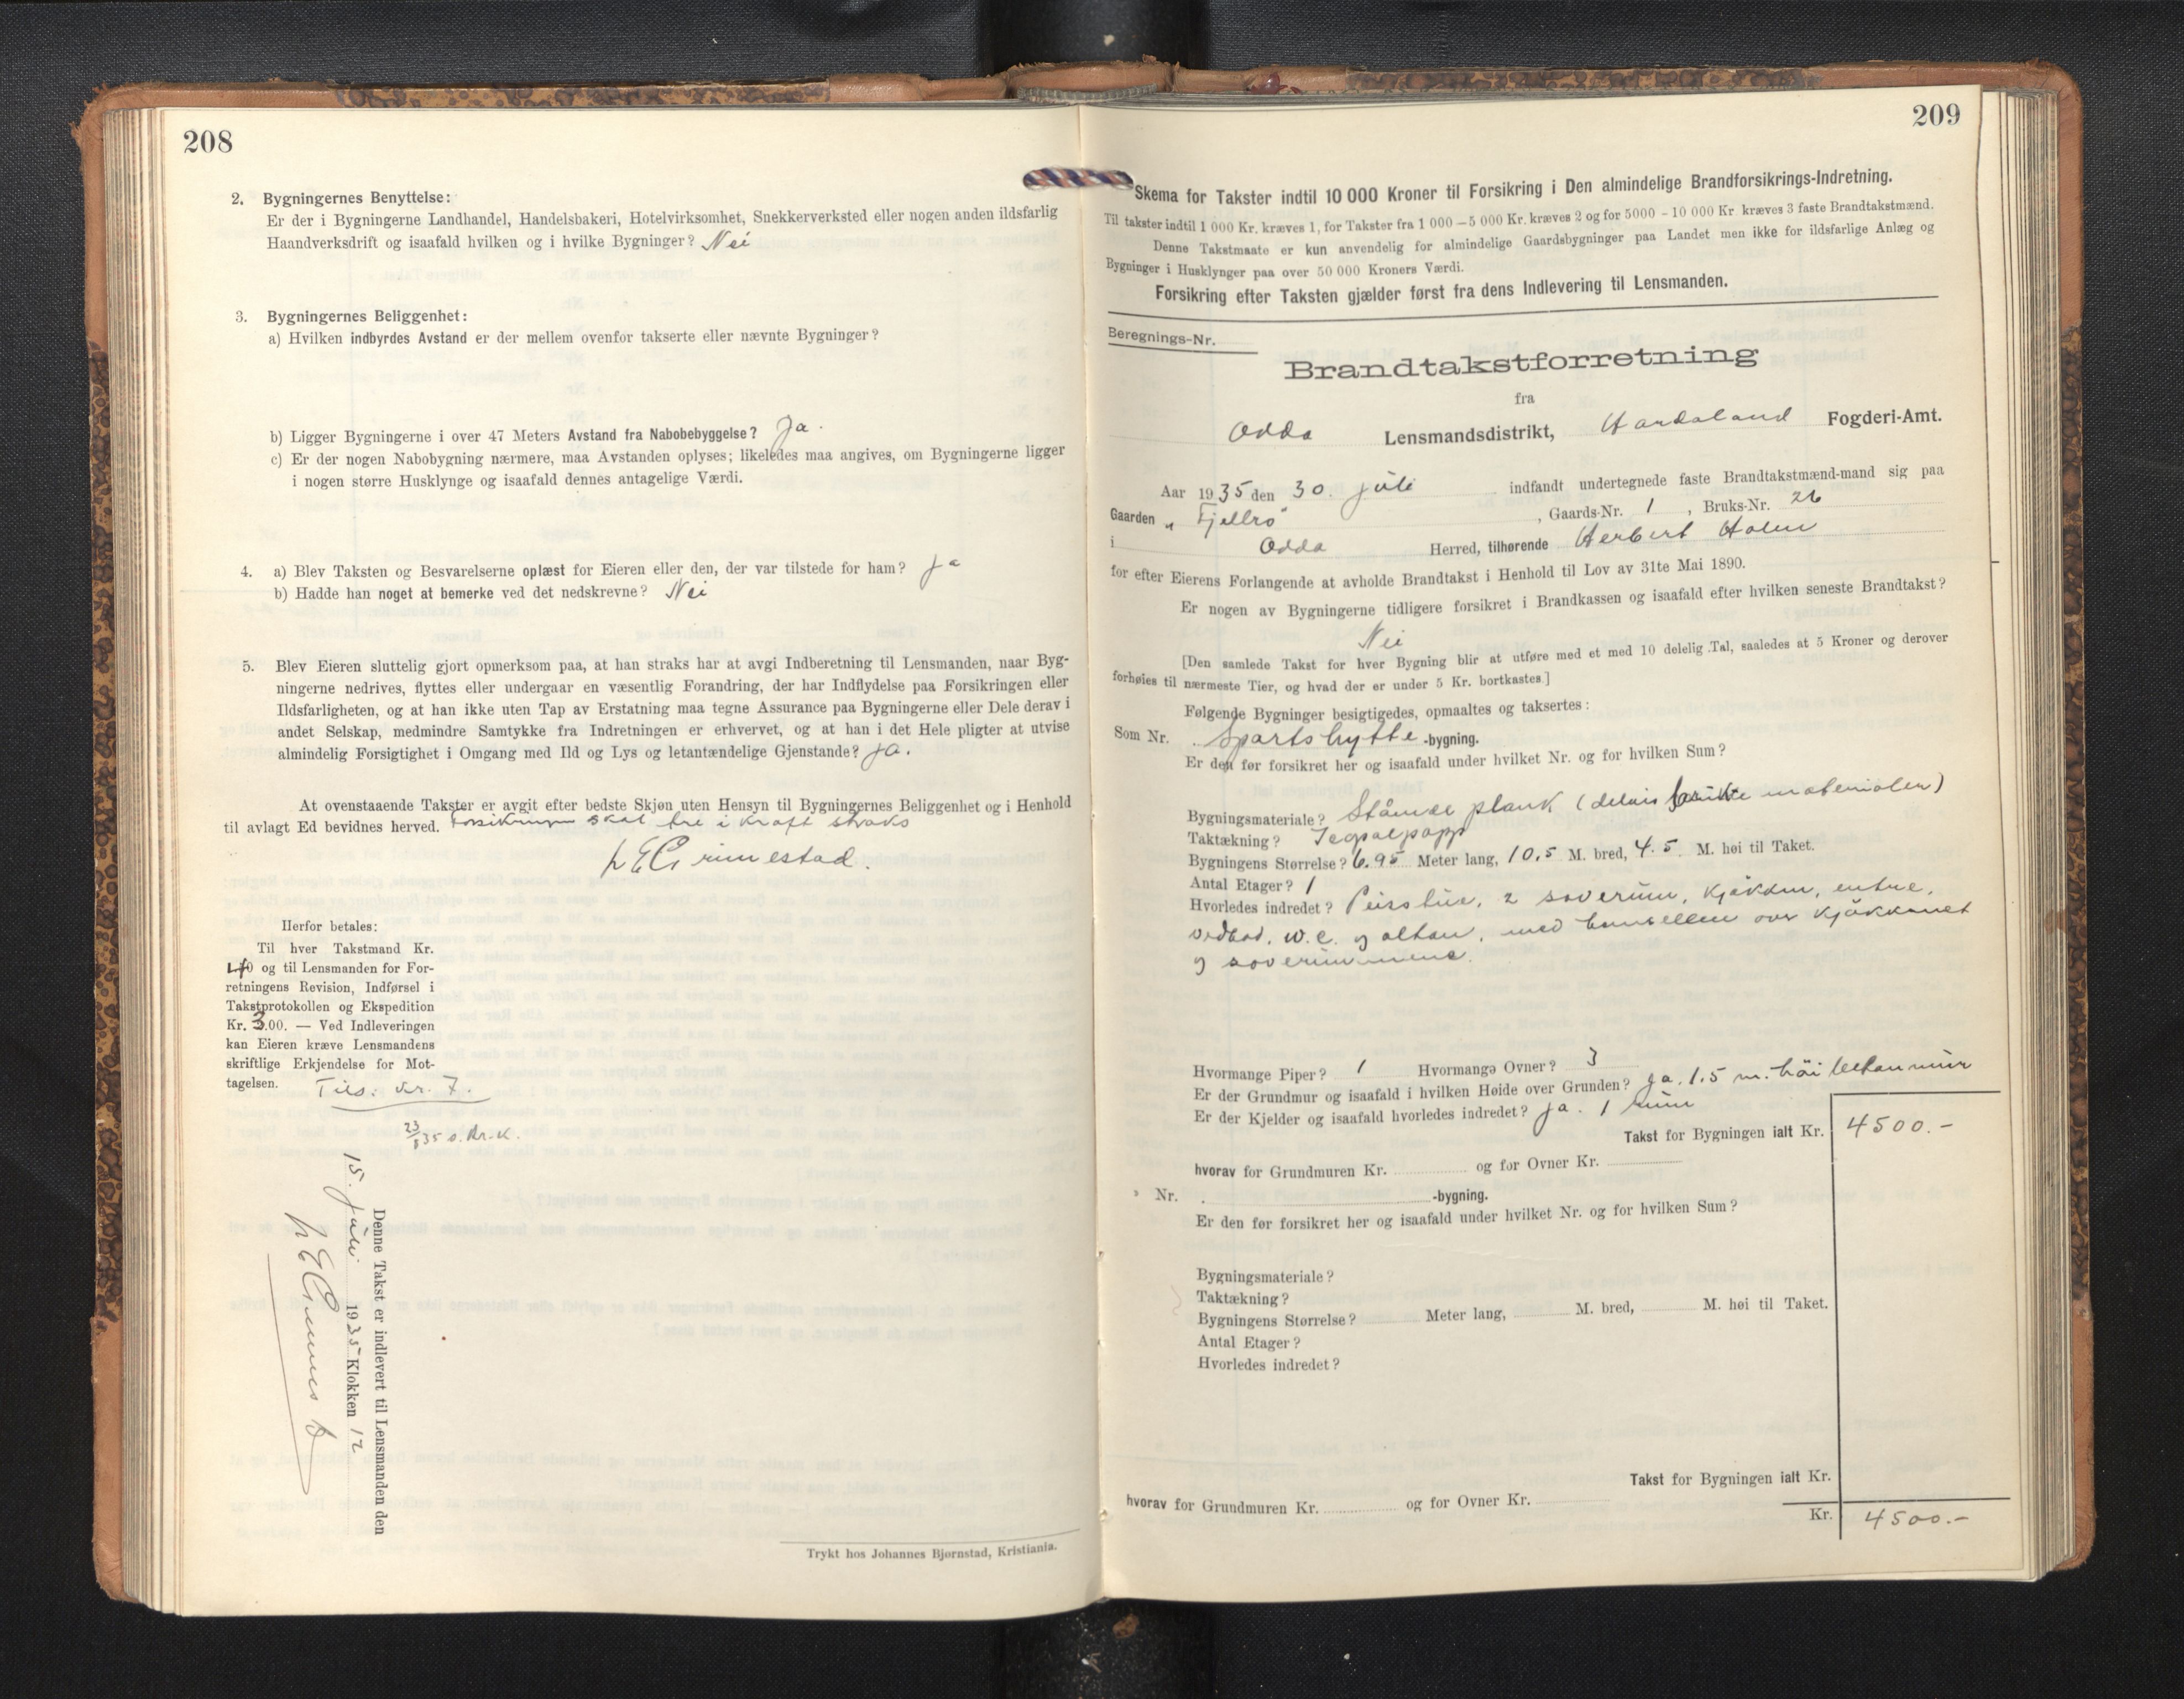 208
2. Bygningernes Benyttelse:
Er der i Bygningerne Landhandel, Handelsbakeri, Hotelvirksomhet, Snekkerverksted eller nogen anden ildsfarlig
Haandverksdrift og isaafald hvilken og i hvilke Bygninger? Nei
3. Bygningernes Beliggenhet:
a) Hvilken indbyrdes Avstand er der mellem ovenfor takserte eller nævnte Bygninger?
b) Ligger Bygningerne i over 47 Meters Avstand fra Nabobebyggelse? Ja.
c) Er der nogen Nabobygning nærmere, maa Avstanden oplyses; likeledes maa angives, om Bygningerne ligger
i nogen større Husklynge og isaafald dennes antagelige Værdi.
4. a) Blev Taksten og Besvarelserne oplæst for Eieren eller den, der var tilstede for ham? Ja
b) Hadde han noget at bemerke ved det nedskrevne? Nei
5. Blev Eieren sluttelig gjort opmerksom paa, at han straks har at avgi Indberetning til Lensmanden, naar Byg-
ningerne nedrives, flyttes eller undergaar en væsentlig Forandring, der har Indflydelse paa Forsikringen eller
Ildsfarligheten, og at han ikke uten Tap av Erstatning maa tegne Assurance paa Bygningerne eller Dele derav i
andet Selskap, medmindre Samtykke fra Indretningen er erhvervet, og at han i det Hele pligter at utvise
almindelig Forsigtighet i Omgang med Ild og Lys og letantændelige Gjenstande? Ja.
At ovenstaaende Takster er avgit efter bedste Skjøn uten Hensyn til Bygningernes Beliggenhet og i Henhold
til avlagt Ed bevidnes herved. Forsikringen skal tre i kraft straks
Herfor betales:
Til hver Takstmand Kr.
og til Lensmanden for For-
retningens Revision, Indførsel i
Takstprotokollen og Ekspedition
Kr. 3.00. — Ved Indleveringen
kan Eieren kræve Lensmandens
skriftlige Erkjendelse for Mot-
tagelsen. Tils: kr. 7.
23/8 35
Denne Takst er indlevert til Lensmanden den
15. juli 1935 Klokken 12
Trykt hos Johannes Bjørnstad, Kristiania.
209
Skema for Takster indtil 10 000 Kroner til Forsikring i Den almindelige Brandforsikrings-Indretning.
Til takster indtil 1 000 Kr. kræves 1, for Takster fra 1 000 – 5 000 Kr. kræves 2 og for 5000 – 10 000 Kr. kræves 3 faste Brandtakstmænd.
Denne Takstmaate er kun anvendelig for almindelige Gaardsbygninger paa Landet men ikke for ildsfarlige Anlæg og
Bygninger i Husklynger paa over 50 000 Kroners Værdi.
Forsikring efter Taksten gjælder først fra dens Indlevering til Lensmanden.
Beregnings-Nr.
Brandtakstforretning
fra
Odda Lensmandsdistrikt, Hordaland Fogderi-Amt.
Aar 1935 den 30. juli indfandt undertegnede faste Brandtakstmænd-mand sig paa
Gaarden „Fjellro“, Gaards-Nr. 1, Bruks-Nr. 26
i Odda Herred, tilhørende Herbert Holm
for efter Eierens Forlangende at avholde Brandtakst i Henhold til Lov av 31te Mai 1890.
Er nogen av Bygningerne tidligere forsikret i Brandkassen og isaafald efter hvilken seneste Brandtakst?
Nei
[Den samlede Takst for hver Bygning blir at utføre med et med 10 delelig Tal, saaledes at 5 Kroner og derover
forhøies til nærmeste Tier, og hvad der er under 5 Kr. bortkastes.]
Følgende Bygninger besigtigedes, opmaaltes og taksertes:
Som Nr. Sportshytte -bygning.
Er den før forsikret her og isaafald under hvilket Nr. og for hvilken Sum?
Bygningsmateriale? Stående plank (delvis brukte materialer)
Taktækning? Tegpalpapp
Bygningens Størrelse? 6.95 Meter lang, 10.5 M. bred, 4.5 M. høi til Taket.
Antal Etager? 1
Hvorledes indredet? Peisstue, 2 soverum, kjøkken, entre,
vedbod, W.C. og altan, med hemsellem over kjøkkenet
og soverummene.
Hvormange Piper? 1 Hvormange Ovner? 3
Er der Grundmur og isaafald i hvilken Høide over Grunden? Ja. 1.5 m. høi betonmur
Er der Kjelder og isaafald hvorledes indredet? Ja. 1 rum
Takst for Bygningen ialt Kr. 4500.-
hvorav for Grundmuren Kr. og for Ovner Kr.
» Nr. -bygning.
Er den før forsikret her og isaafald under hvilket Nr. og for hvilken Sum?
Bygningsmateriale?
Taktækning?
Bygningens Størrelse? Meter lang, M. bred, M. høi til Taket.
Antal Etager?
Hvorledes indredet?
Takst for Bygningen ialt Kr.
hvorav for Grundmuren Kr. og for Ovner Kr.
Kr. 4500.-